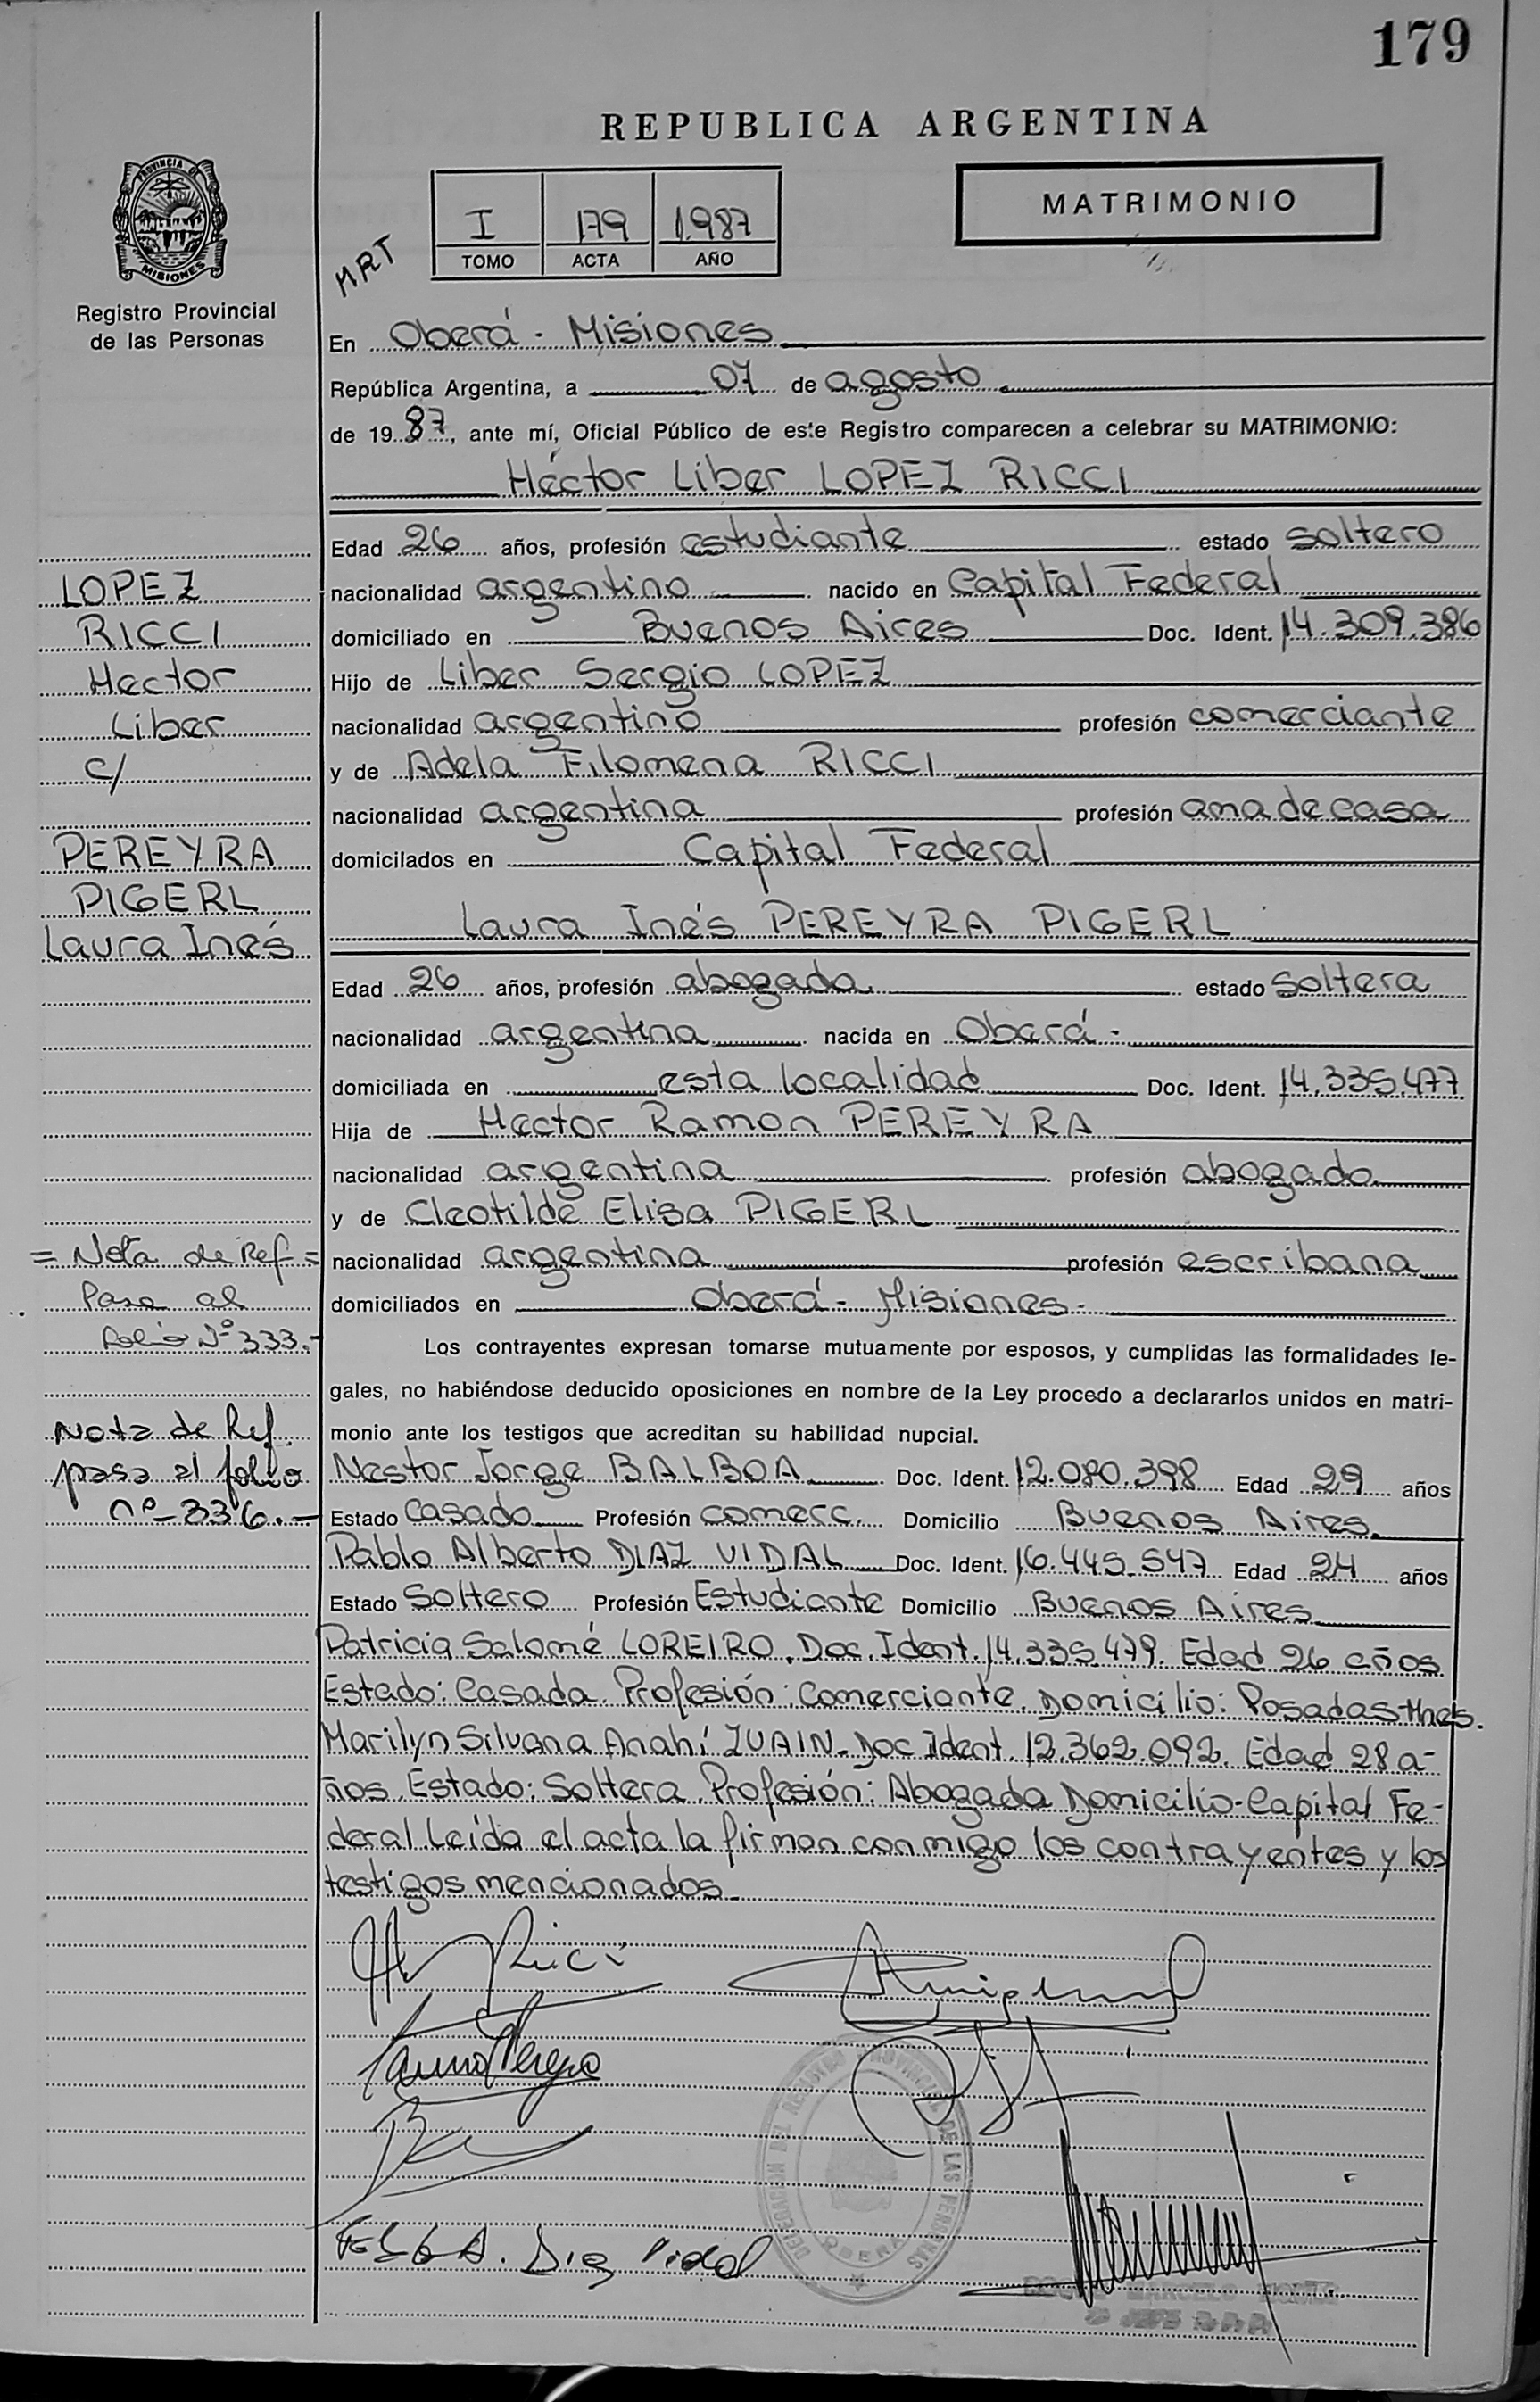 179
REPUBLICA ARGENTINA
PROVINCIA DE
MISIONES
Registro Provincial
de las Personas
MRT
I 179 1.987
TOMO ACTA AÑO
MATRIMONIO
En Oberá - Misiones
República Argentina, a 07 de agosto
de 1987, ante mí, Oficial Público de este Registro comparecen a celebrar su MATRIMONIO:
Héctor Liber LOPEZ RICCI
Edad 26 años, profesión estudiante estado soltero
nacionalidad argentino nacido en Capital Federal
domiciliado en Buenos Aires Doc. Ident. 14.309.386
Hijo de Liber Sergio LOPEZ
nacionalidad argentino profesión comerciante
y de Adela Filomena RICCI
nacionalidad argentina profesión ama de casa
domicilados en Capital Federal
Laura Inés PEREYRA PIGERL
Edad 26 años, profesión abogada estado soltera
nacionalidad argentina nacida en Oberá -
domiciliada en esta localidad Doc. Ident. 14.335.477
Hija de Hector Ramon PEREYRA
nacionalidad argentina profesión abogado
y de Cleotilde Elisa PIGERL
nacionalidad argentina profesión escribana
domiciliados en Oberá - Misiones -
Los contrayentes expresan tomarse mutuamente por esposos, y cumplidas las formalidades le-
gales, no habiéndose deducido oposiciones en nombre de la Ley procedo a declararlos unidos en matri-
monio ante los testigos que acreditan su habilidad nupcial.
Nestor Jorge BALBOA Doc. Ident. 12.080.398 Edad 29 años
Estado Casado Profesión comerc. Domicilio Buenos Aires.
Pablo Alberto DIAZ VIDAL Doc. Ident. 16.445.547 Edad 24 años
Estado Soltero Profesión Estudiante Domicilio Buenos Aires
Patricia Salomé LOREIRO. Doc. Ident. 14.335.479. Edad 26 años
Estado: Casada. Profesión: Comerciante. Domicilio: Posadas-Mnes.
Marilyn Silvana Anahí ZUAIN. Doc Ident. 12.362.092. Edad 28 a-
ños. Estado: Soltera. Profesión: Abogada Domicilio-Capital Fe-
deral. Leída el acta la firman conmigo los contrayentes y los
testigos mencionados.
LOPEZ
RICCI
Hector
Liber
c/
PEREYRA
PIGERL
Laura Inés
= Nota de Ref =
Pasa al
folio Nº 333.-
Nota de Ref.
pasa al folio
nº 336.-
Ricci
Laura Pereyra
A. Diaz Vidal
DELEGACION DEL REGISTRO PROVINCIAL DE LAS PERSONAS
OBERA
MARCELO